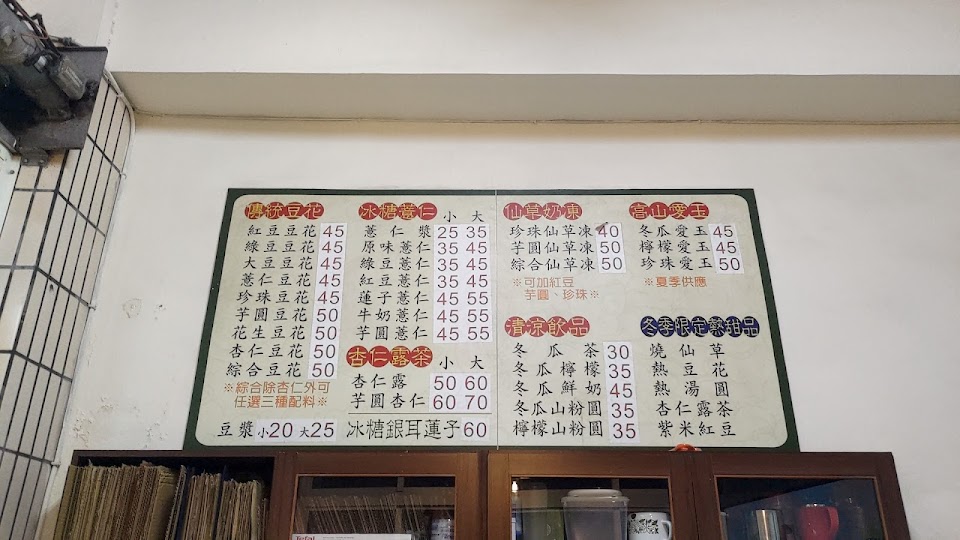 傳統豆花
紅豆豆花 45
綠豆豆花 45
大豆豆花 45
薏仁豆花 45
珍珠豆花 45
芋圓豆花 50
花生豆花 50
杏仁豆花 50
綜合豆花 50
※綜合除杏仁外可
任選三種配料※
豆漿 小20 大25
冰糖薏仁 小 大
薏仁漿 25 35
原味薏仁 35 45
綠豆薏仁 35 45
紅豆薏仁 35 45
蓮子薏仁 45 55
牛奶薏仁 45 55
芋圓薏仁 45 55
杏仁露茶 小 大
杏仁露 50 60
芋圓杏仁 60 70
冰糖銀耳蓮子 60
仙草奶凍
珍珠仙草凍 40
芋圓仙草凍 50
綜合仙草凍 50
※可加紅豆
芋圓、珍珠※
清凉飲品
冬瓜茶 30
冬瓜檸檬 35
冬瓜鮮奶 45
冬瓜山粉圓 35
檸檬山粉圓 35
高山愛玉
冬瓜愛玉 45
檸檬愛玉 45
珍珠愛玉 50
※夏季供應
冬季限定熱甜品
燒仙草
熱豆花
熱湯圓
杏仁露茶
紫米紅豆
Tefal